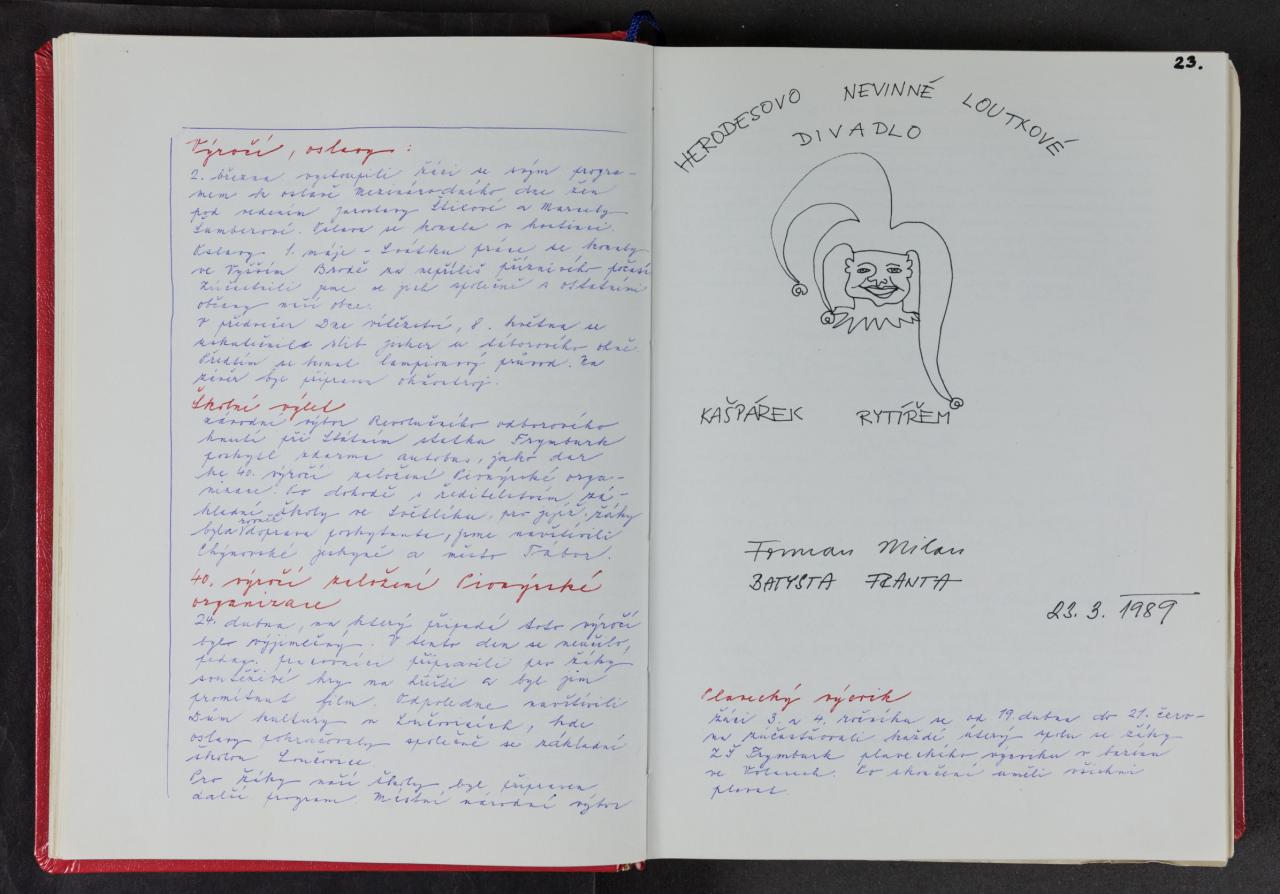 Výročí, oslavy:
2. března vystoupili žáci se svým progra-
mem k oslavě Mezinárodního dne žen
pod vedením Jaroslavy Štilové a Marcely
Šumberové. Oslava se konala v hostinci.
Oslavy 1. máje - Svátku práce se konaly
ve Vyšším Brodě za nepříliš příznivého počasí
Zúčastnili jsme se jich společně s ostatními
občany naší obce.
V předvečer Dne vítězství, 8. května se
uskutečnil slib jisker u táborového ohně.
Předtím se konal lampionový průvod. Na
závěr byl připraven ohňostroj.
Školní výlet
Závodní výbor Revolučního odborového
hnutí při Státním statku Frymburk
poskytl zdarma autobus, jako dar
ke 40. výročí založení Pionýrské orga-
nizace. Po dohodě s ředitelstvím zá-
kladní školy ve Světlíku, pro jejíž žáky
byla rovněž doprava poskytnuta, jsme navštívili
Chýnovské jeskyně a město Tábor.
40. výročí založení Pionýrské
organizace
24. dubna, na který připadá toto výročí
bylo výjimečný. V tento den se neučilo,
pedag. pracovníci připravili pro žáky
soutěživé hry na hřišti a byl jim
promítnut film. Odpoledne navštívili
Dům kultury v Loučovicích, kde
oslavy pokračovaly společně se základní
školou Loučovice.
Pro žáky naší školy byl připraven
další program. Místní národní výbor
23.
HERODESOVO NEVINNÉ LOUTKOVÉ
DIVADLO
KAŠPÁREK RYTÍŘEM
Forman Milan
BATYSTA FRANTA
23. 3. 1989
Plavecký výcvik
Žáci 3. a 4. ročníku se od 19. dubna do 21. červ-
na zúčastňovali každé úterý spolu se žáky
ZŠ Frymburk plaveckého výcviku v bazénu
ve Volarech. Po skončení uměli všichni
plavat.